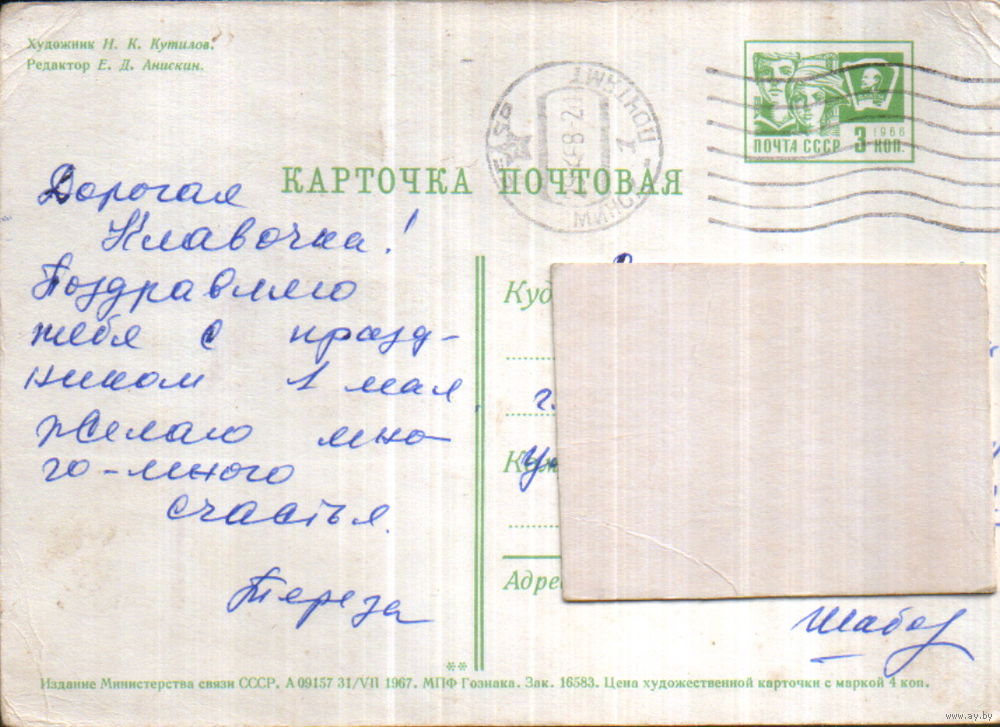 Художник И. К. Кутилов.
Редактор Е. Д. Анискин.
ПОЧТА СССР 3 КОП.
1966
КАРТОЧКА ПОЧТОВАЯ
ПОЧТАМТ
МИНСК
Дорогая
Клавочка!
Поздравляю
тебя с празд-
ником 1 мая,
желаю мно-
го-много
счастья.
Тереза
Куд
г.
Ком
Адре
Шабо
**
Издание Министерства связи СССР. А 09157 31/VII 1967. МПФ Гознака. Зак. 16583. Цена художественной карточки с маркой 4 коп.
www.ay.by